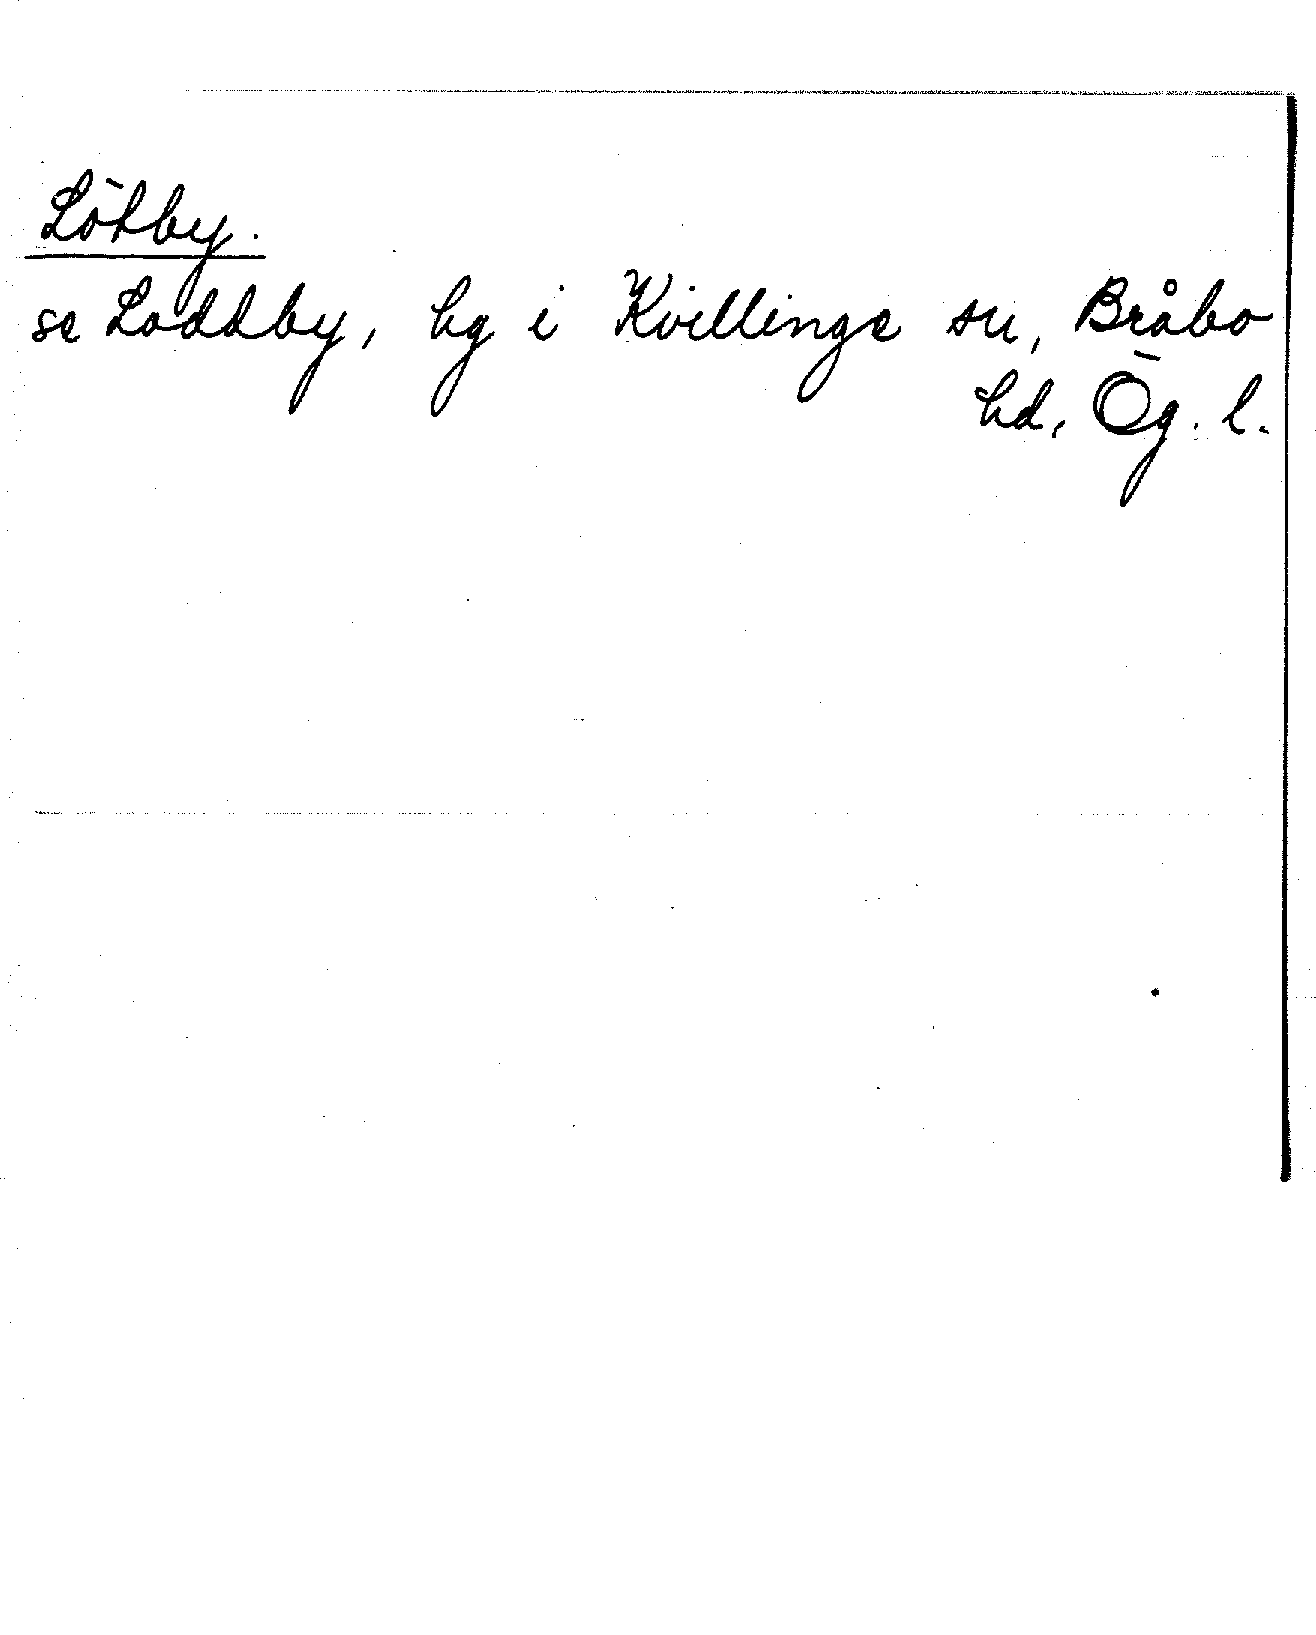 Lötby.
se Loddby, hg i Kvillinge sn, Bråbo
hd, Ög. l.